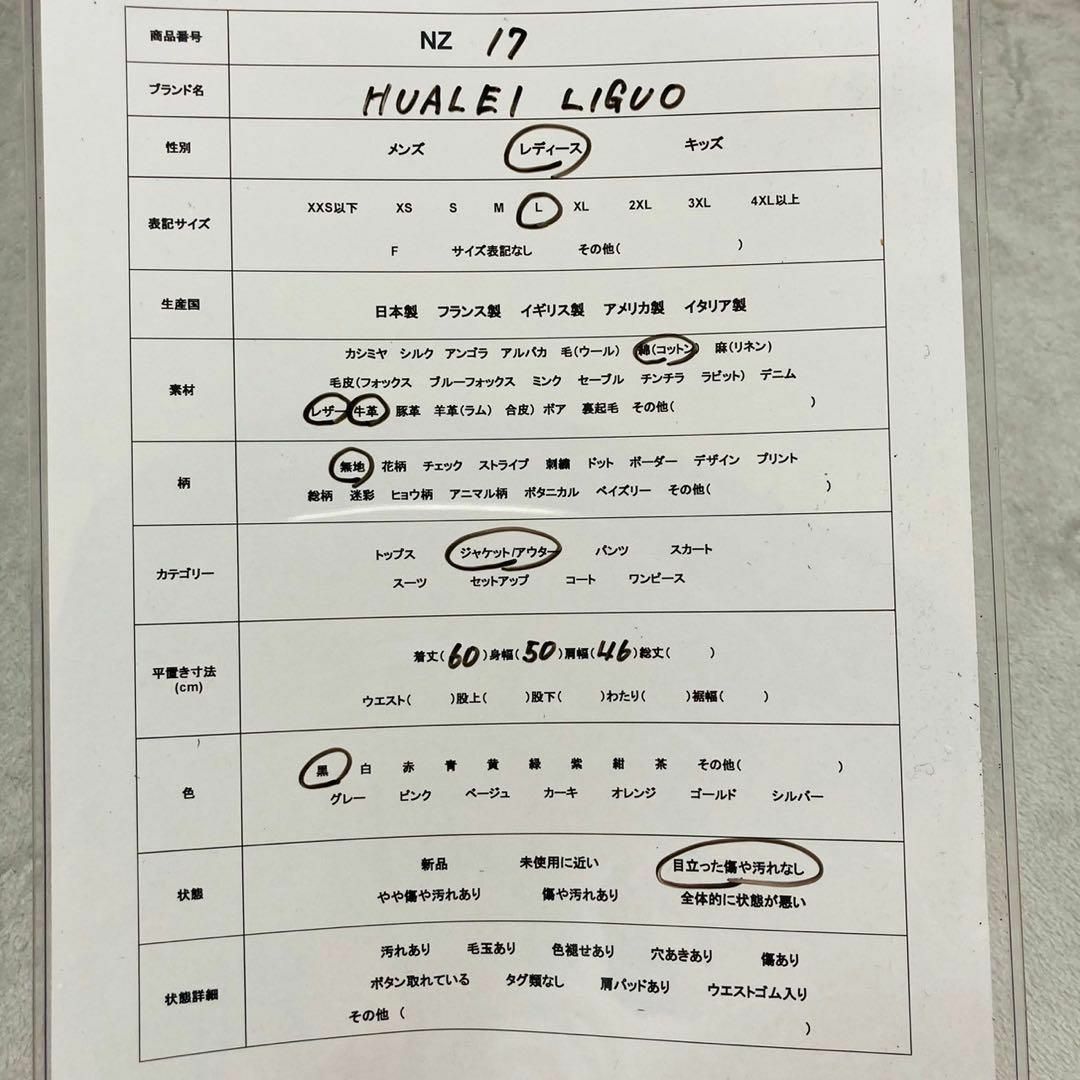 商品番号 NZ 17
ブランド名 HUALEI LIGUO
性別 メンズ レディース キッズ
表記サイズ XXS以下 XS S M L XL 2XL 3XL 4XL以上
F サイズ表記なし その他( )
生産国 日本製 フランス製 イギリス製 アメリカ製 イタリア製
素材 カシミヤ シルク アンゴラ アルパカ 毛(ウール) 綿(コットン) 麻(リネン)
毛皮(フォックス ブルーフォックス ミンク セーブル チンチラ ラビット) デニム
レザー 牛革 豚革 羊革(ラム) 合皮) ボア 裏起毛 その他( )
柄 無地 花柄 チェック ストライプ 刺繍 ドット ボーダー デザイン プリント
総柄 迷彩 ヒョウ柄 アニマル柄 ボタニカル ペイズリー その他( )
カテゴリー トップス ジャケット/アウター パンツ スカート
スーツ セットアップ コート ワンピース
平置き寸法
(cm)
着丈(60)身幅(50)肩幅(46)総丈( )
ウエスト( )股上( )股下( )わたり( )裾幅( )
色 黒 白 赤 青 黄 緑 紫 紺 茶 その他( )
グレー ピンク ベージュ カーキ オレンジ ゴールド シルバー
状態 新品 未使用に近い 目立った傷や汚れなし
やや傷や汚れあり 傷や汚れあり 全体的に状態が悪い
状態詳細 汚れあり 毛玉あり 色褪せあり 穴あきあり 傷あり
ボタン取れている タグ類なし 肩パッドあり ウエストゴム入り
その他 ( )